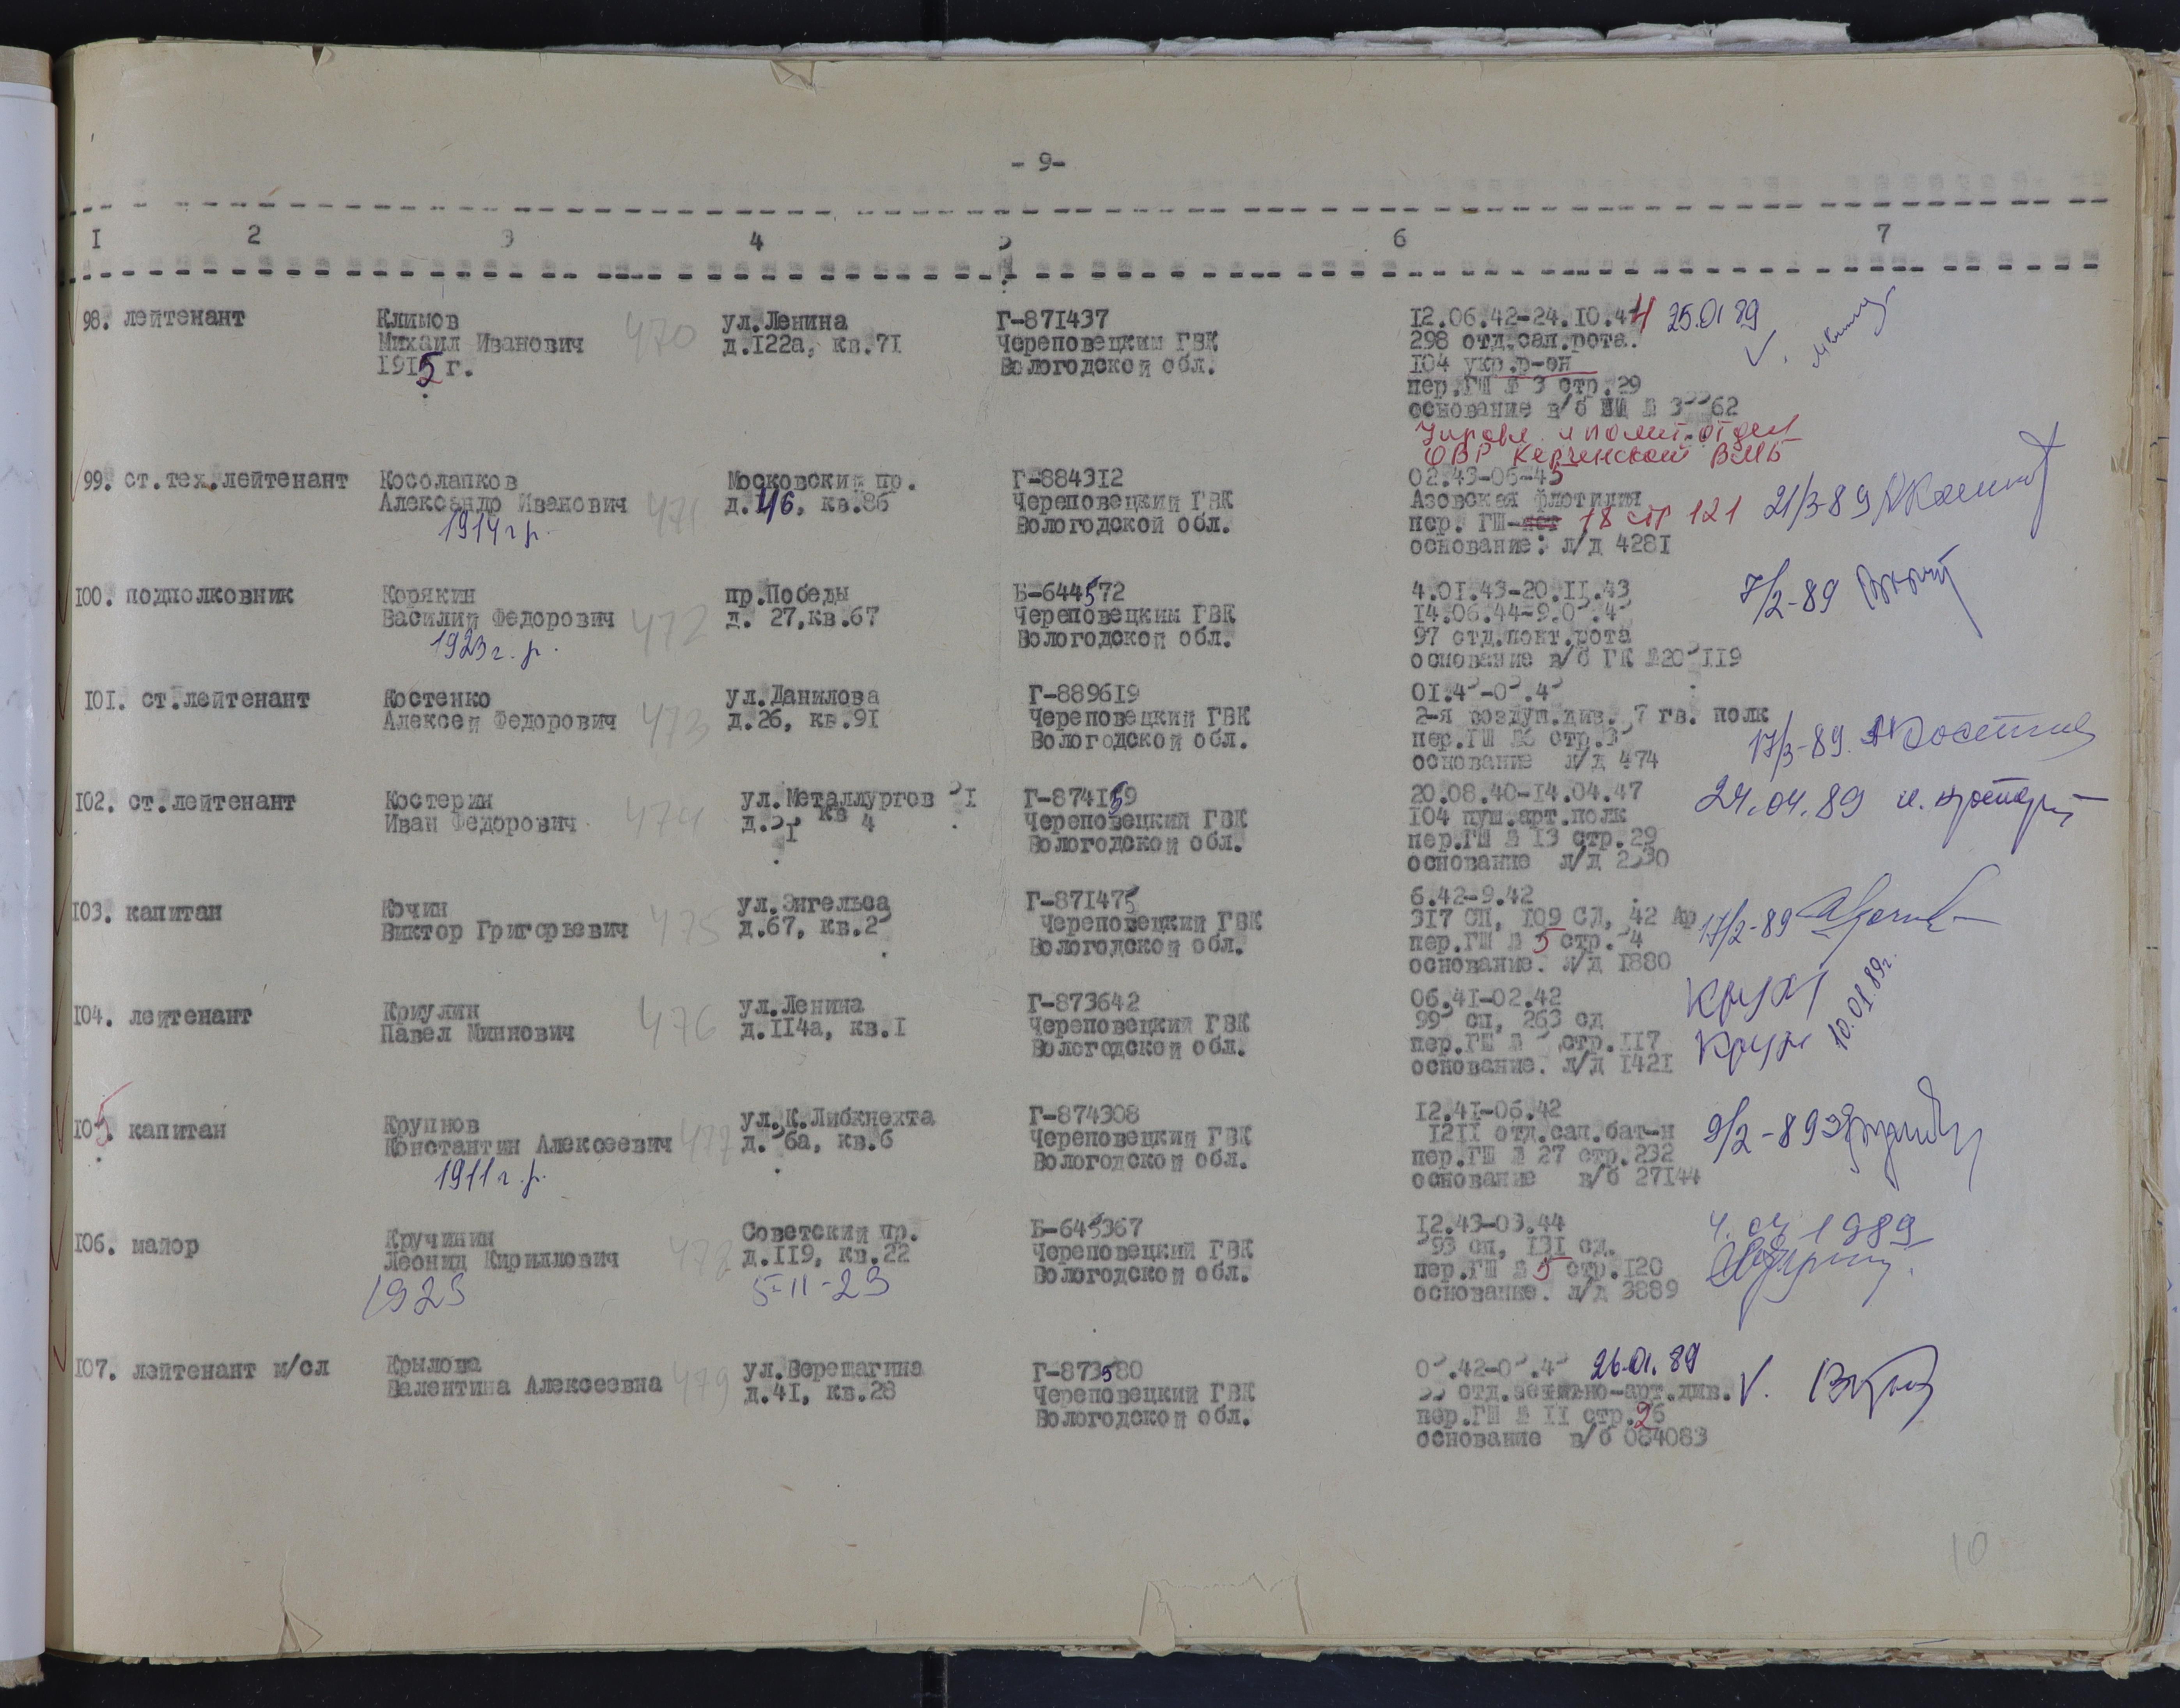 - 9-
I 2 3 4 5 6 7
98. лейтенант Климов ул.Ленина Г-871437 12.06.42-24.10.44 25.01 89
Михаил Иванович 470 д.122а, кв.71 Череповецким ГВК 298 отд.сап.рота.
1915 г. Вологодской обл. 104 укр.р-он
пер.ГШ № 3 стр.29
основание в/б
Управл. и полит.отдел
ОВР Керченской ВМБ
99. ст.тех.лейтенант Косолапков Московский пр. Г-884312 02.43-06-45
Александр Иванович 471 д.46, кв.86 Череповецкий ГВК Азовская флотилия
1914 г р. Вологодской обл. пер. ГШ- 18 стр 121 21/3-89
основание: л/д 4281
100. подполковник Корякин пр.Победы Б-644572 4.01.43-20.11.43 7/2-89
Василий Федорович 472 д. 27,кв.67 Череповецким ГВК 14.06.44-9.
1923 г. р. Вологодской обл. 97 отд.понт.рота
основание в/б ГК
101. ст.лейтенант Костенко ул.Данилова Г-889619
Алексей Федорович 473 д.26, кв.91 Череповецкий ГВК 2-я воздуш.див. 7 гв. полк
Вологодской обл. пер.ГШ стр. 17/3-89.
основание л/д 474
102. ст.лейтенант Костерин ул.Металлургов Г-874159 20.08.40-14.04.47 24.04.89
Иван Федорович 474 кв 4 Череповецкий ГВК 104 пуш.арт.полк
Вологодской обл. пер.ГШ № 13 стр.29
основание л/д
103. капитан Кочин ул.Энгельса Г-871475 6.42-9.42
Виктор Григорьевич 475 д.67, Череповецкий ГВК 317 СП, 109 СД, 42 Ар 17/2-89
Вологодской обл. пер.ГШ № 5 стр.
основание. л/д 1880
104. лейтенант Криулин ул.Ленина Г-873642 06.41-02.42
Павел Миннович 476 д.114а, кв.1 Череповецкий ГВК сп, 263 сд 10.01.89г.
Вологодской обл. пер.ГШ № стр.117
основание. л/д 1421
105. капитан Крупнов ул.К.Либкнехта Г-874308 12.41-06.42
Константин Алексеевич 477 кв.6 Череповецкий ГВК 1211 отд.сап.бат-н 9/2-89
Вологодской обл. пер.ГШ № 27 стр.232
1911 г. р. основание в/б 27144
106. майор Кручинин Советский пр. Б-645367 12.43-03.44 1989
Леонид Кириллович 478 д.119, кв.22 Череповецкий ГВК сп, 131 сд.
1923 5-11-23 Вологодской обл. пер.ГШ № 5 стр.120
основание. л/д 3889
107. лейтенант м/сл Крылова ул.Верещагина Г-873580 26.01.89
Валентина Алексеевна 479 д.41, кв.28 Череповецкий ГВК отд.зенитно-арт.див.
Вологодской обл. пер.ГШ № 11 стр.26
основание в/б 084083
10